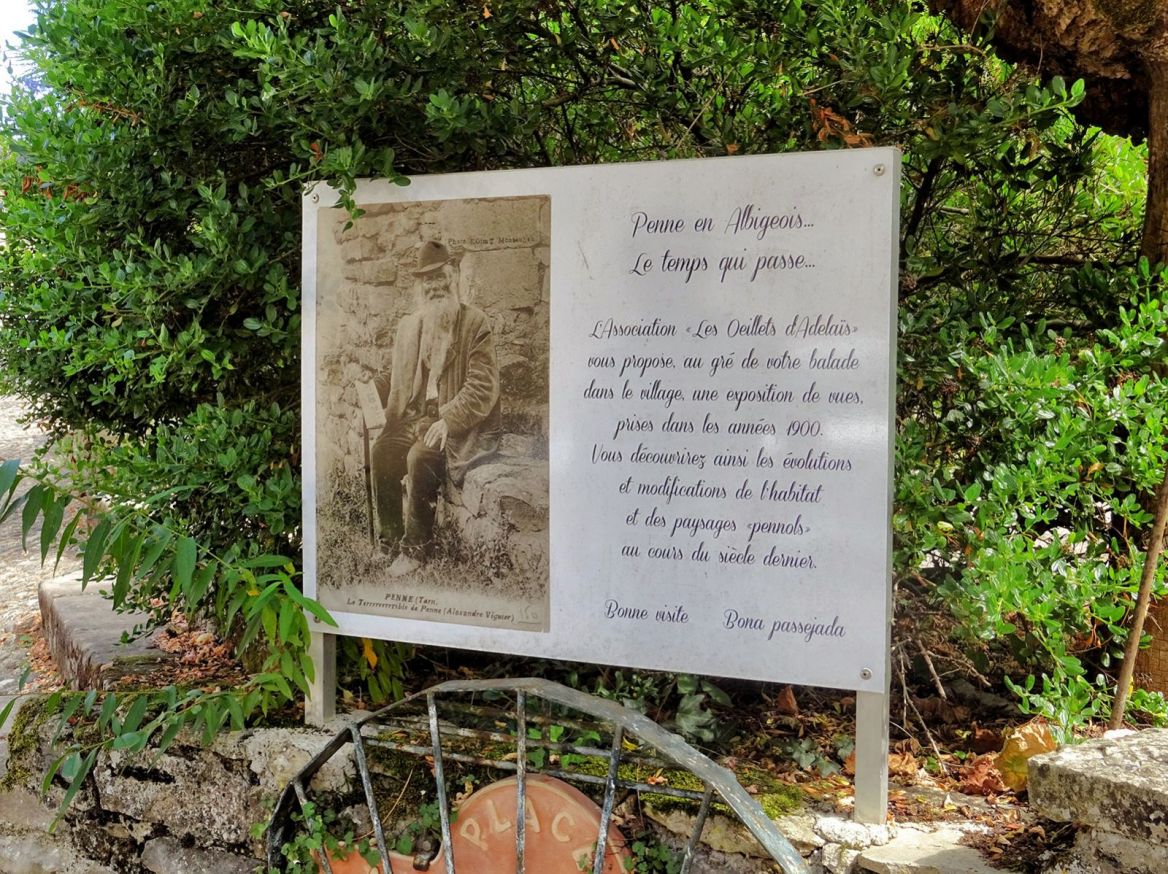 Penne en Albigeois...
Le temps qui passe...
L'Association «Les Oeillets d'Adelaïs»
vous propose, au gré de votre balade
dans le village, une exposition de vues,
prises dans les années 1900.
Vous découvrirez ainsi les évolutions
et modifications de l'habitat
et des paysages «pennols»
au cours du siècle dernier.
Bonne visite Bona passejada
Phot.
PENNE (Tarn)
Le Terrrrrrrrrible de Penne (Alexandre Viguier)
PLACE